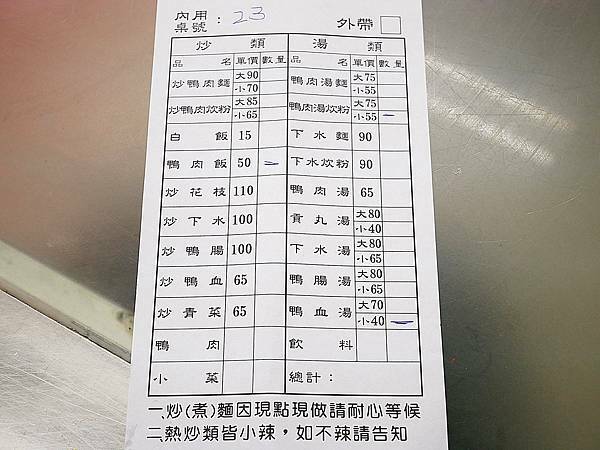 內用
桌號：23 外帶
炒類 湯類
品名 單價 數量 品名 單價 數量
炒鴨肉麵 大90 小70 鴨肉湯麵 大75 小55
炒鴨肉炊粉 大85 小65 鴨肉湯炊粉 大75 小55 一
白飯 15 下水麵 90
鴨肉飯 50 一 下水炊粉 90
炒花枝 110 鴨肉湯 65
炒下水 100 貢丸湯 大80 小40
炒鴨腸 100 下水湯 大80 小65
炒鴨血 65 鴨腸湯 大80 小65
炒青菜 65 鴨血湯 大70 小40 一
鴨肉 飲料
小菜 總計：
一、炒(煮)麵因現點現做請耐心等候
二、熱炒類皆小辣，如不辣請告知